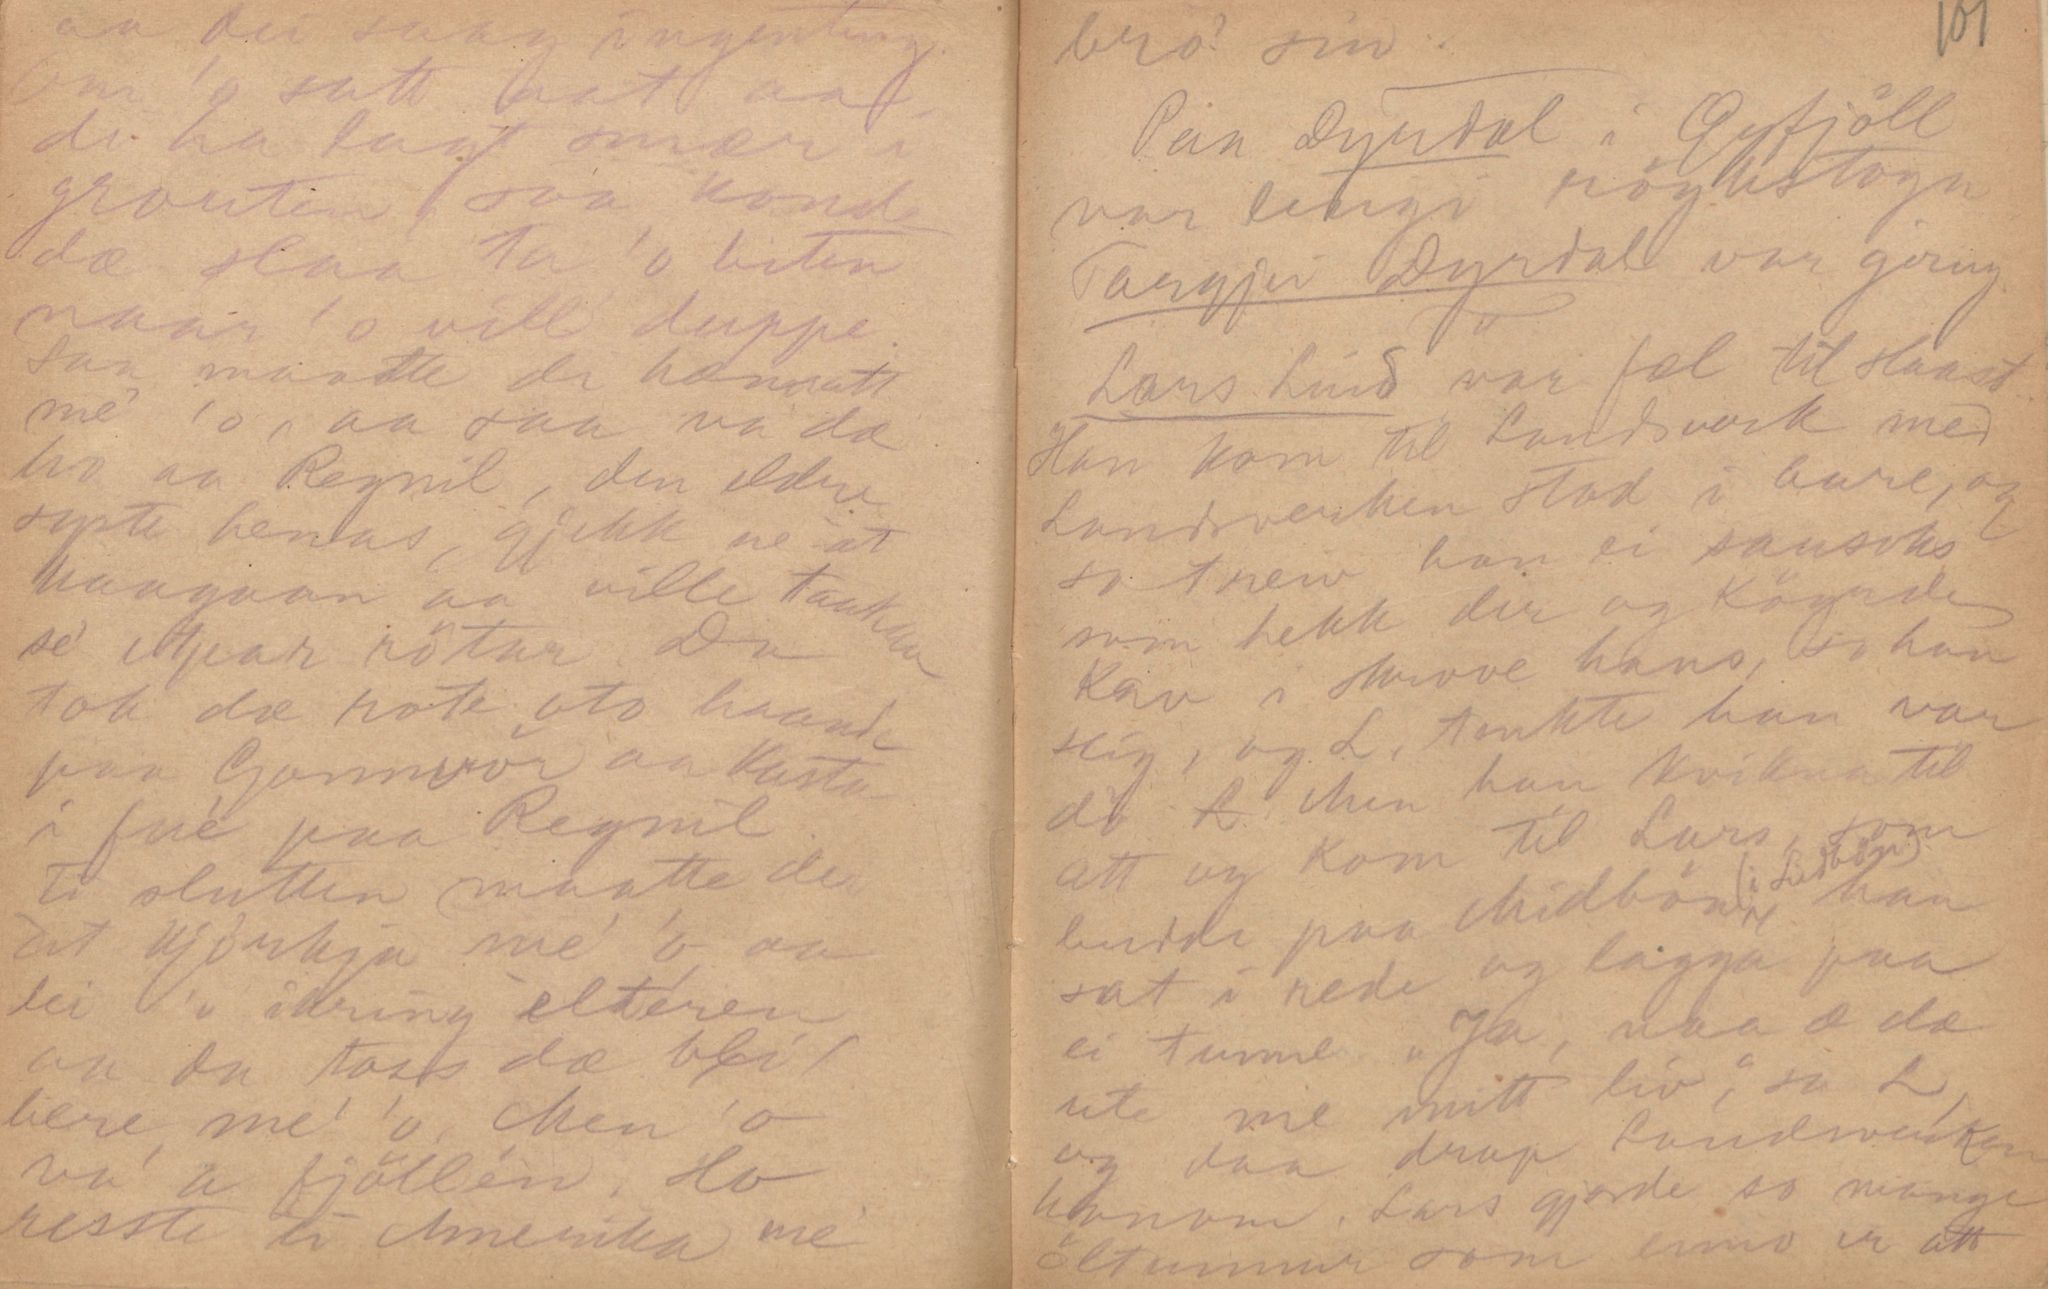 aa dei saag ingenting.
Om 'o satt aat aa
di ha lagt smær i
grauten, saa konde
dæ slaa ta 'o biten
naar 'o vill' duppe.
Saa maatte di
me' 'o, aa saa va dæ
ho aa Regnil, den eldre
syste hennas, gjekk ne at
haagaan aa ville taakka
se rötar. Da
tok dæ rote uto haande
paa Gonnvör aa kasta
i fue' paa Regnil.
Ti slutten maatte dei
at kjörkja me' 'o aa
lei 'o ikring elteren
aa da toss dæ blei
bere me' 'o. Men 'o
va' a fjöllen. Ho
resste ti Amerika me'
101
bro' sin.
Dyrdal i Gyfjöll
var lengi
Targjei Dyrdal var göing
Lars Lind var fæl til slaast
Han kom til Landsverk med
Landsverken stod i bure, og
so treiv han ei sausaks
som hekk der og köyrde
kav i skrove hans, so han
seig, og L. tenkte han var
dö. Men han kvikna til
att og kom til Lars, som
budde paa Midböen (i Lidböen) han
sat i rede og lagga paa
ei tunne. "Ja, naa æ dæ
ute me mitt liv," sa L,
og daa drap Landsverken
honom. Lars gjorde so mange
öltunnur som enno er att